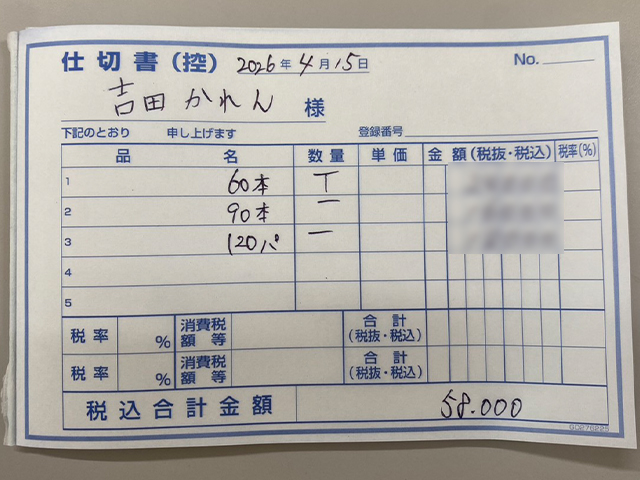 仕切書(控) 2026年4月15日 No.
吉田かれん 様
下記のとおり 申し上げます 登録番号
品名 数量 単価 金額(税抜・税込) 税率(%)
1 60本 T
2 90本 一
3 120パ 一
4
5
税率 % 消費税額等 合計(税抜・税込)
税率 % 消費税額等 合計(税抜・税込)
税込合計金額 58.000